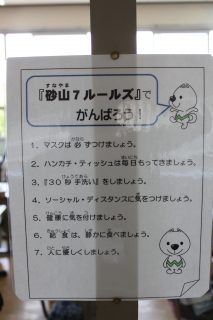 『砂山７ルールズ』で
がんばろう！
1. マスクは必ずつけましょう。
2. ハンカチ・ティッシュは毎日もってきましょう。
3. 『30秒手洗い』をしましょう。
4. ソーシャル・ディスタンスに気をつけましょう。
5. 健康に気を付けましょう。
6. 給食は、静かに食べましょう。
7. 人に優しくしましょう。